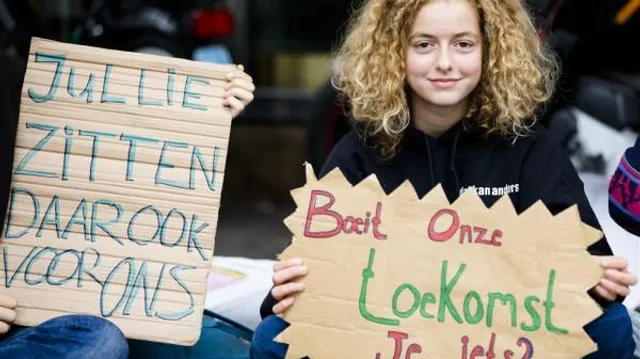 JULLIE
ZITTEN
DAAR OOK
VOOR ONS
kan anders
Boeit Onze
toeKomst
Je iets?